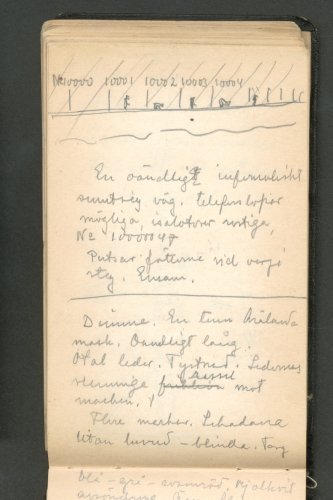 No 10000 10001 10002 10003 10004
En oändligt infernaliskt
smutsig väg. telefonstolpar
möjliga, isolatorer rostiga,
No 1000047
Putsar fötterna vid varje
steg. Ensam.
Dimma. En tunn
mask. Oändligt lång.
Otal leder. Tystnad. Ledernas
mot
marken.
Flere masker. Likadana
Utan huvud – blinda.
blå – grå –